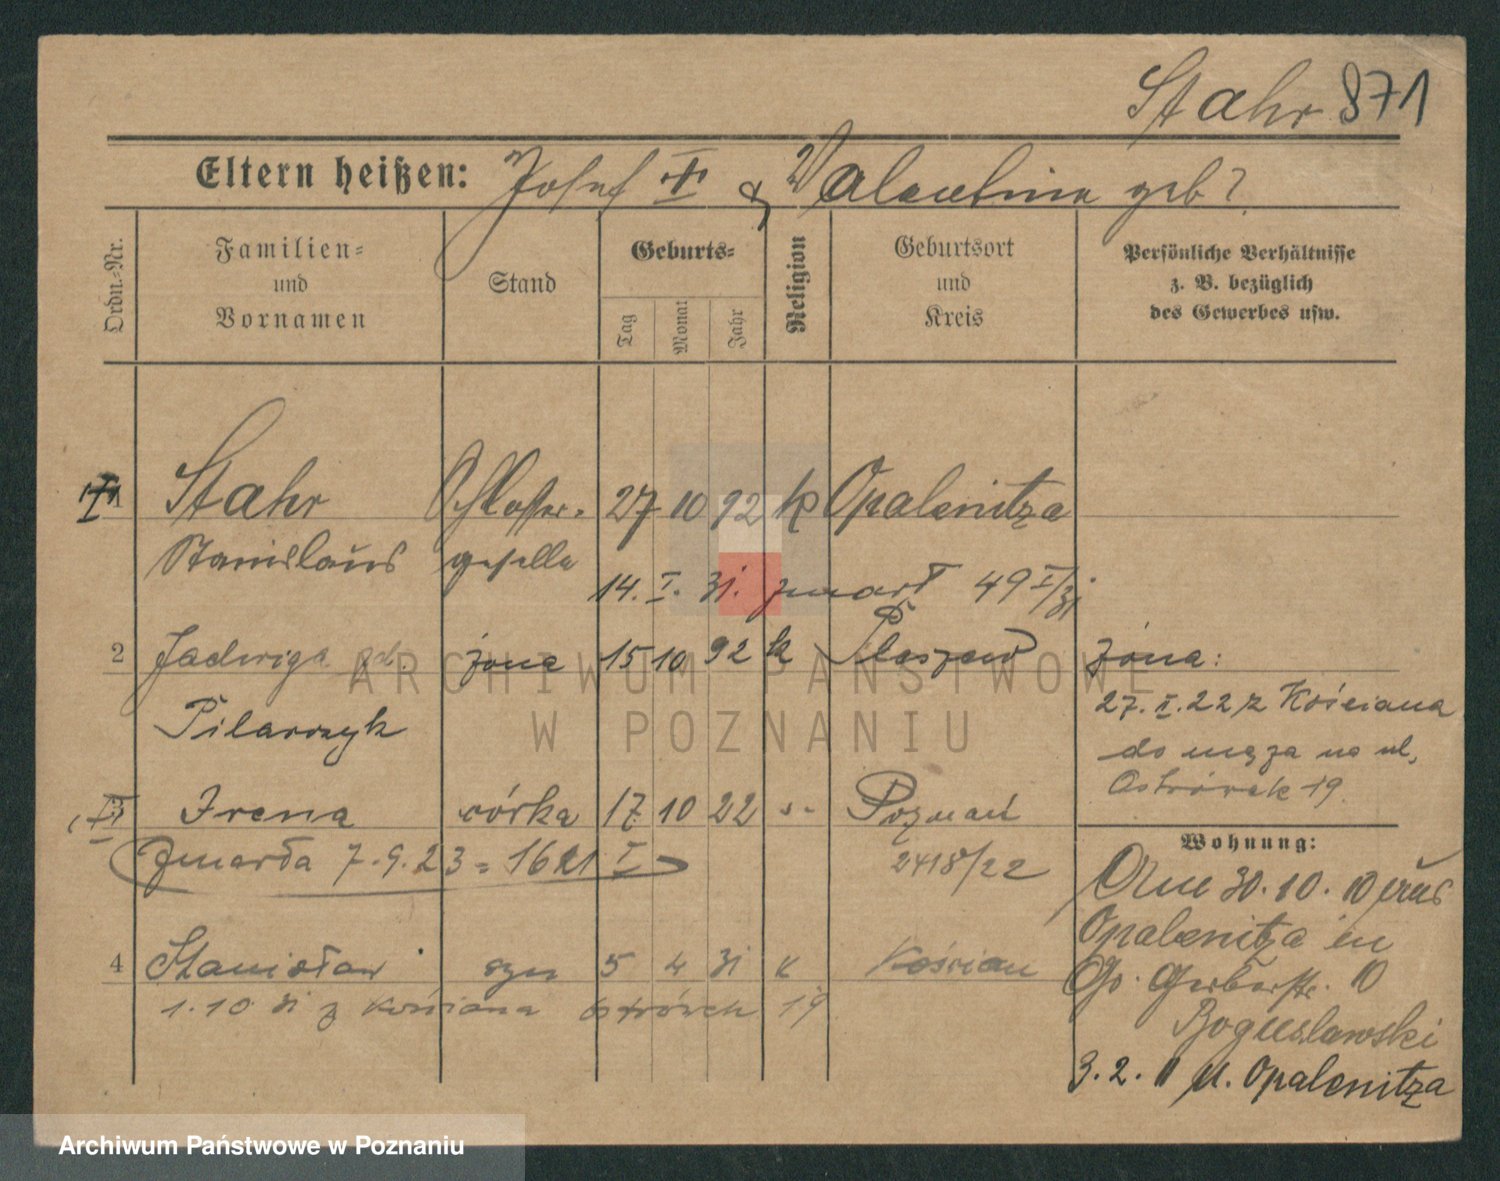 Stahr 871
Eltern heißen: Josef † & Valentine geb?
Ordn.=Nr.
Familien=
und
Vornamen
Stand
Geburts=
Tag
Monat
Jahr
Religion
Geburtsort
und
Kreis
Persönliche Verhältnisse
z. B. bezüglich
des Gewerbes usw.
1 Stahr Schlosser- 27 10 92 k Opalenitza
Stanislaus geselle
14. I. 31. zmarł 49 I/31
2 Jadwiga żona 15 10 92 k Pleszew żona:
Pilarczyk
27. II. 22 z Kościana
do męża na ul.
Ostrówek 19.
3 Irena córka 17 10 22 Poznań
Zmarła 7.9.23 = 1621 I
2418/22
Wohnung:
30.10.10 aus
Opalenitza in
Go. Gerberstr. 10
Boguslawski
3.2.11 u. Opalenitza
4 Stanisław syn 5 4 31 k Kościan
1.10 31 z Kościana Ostrówek 19
ARCHIWUM PAŃSTWOWE
W POZNANIU
Archiwum Państwowe w Poznaniu